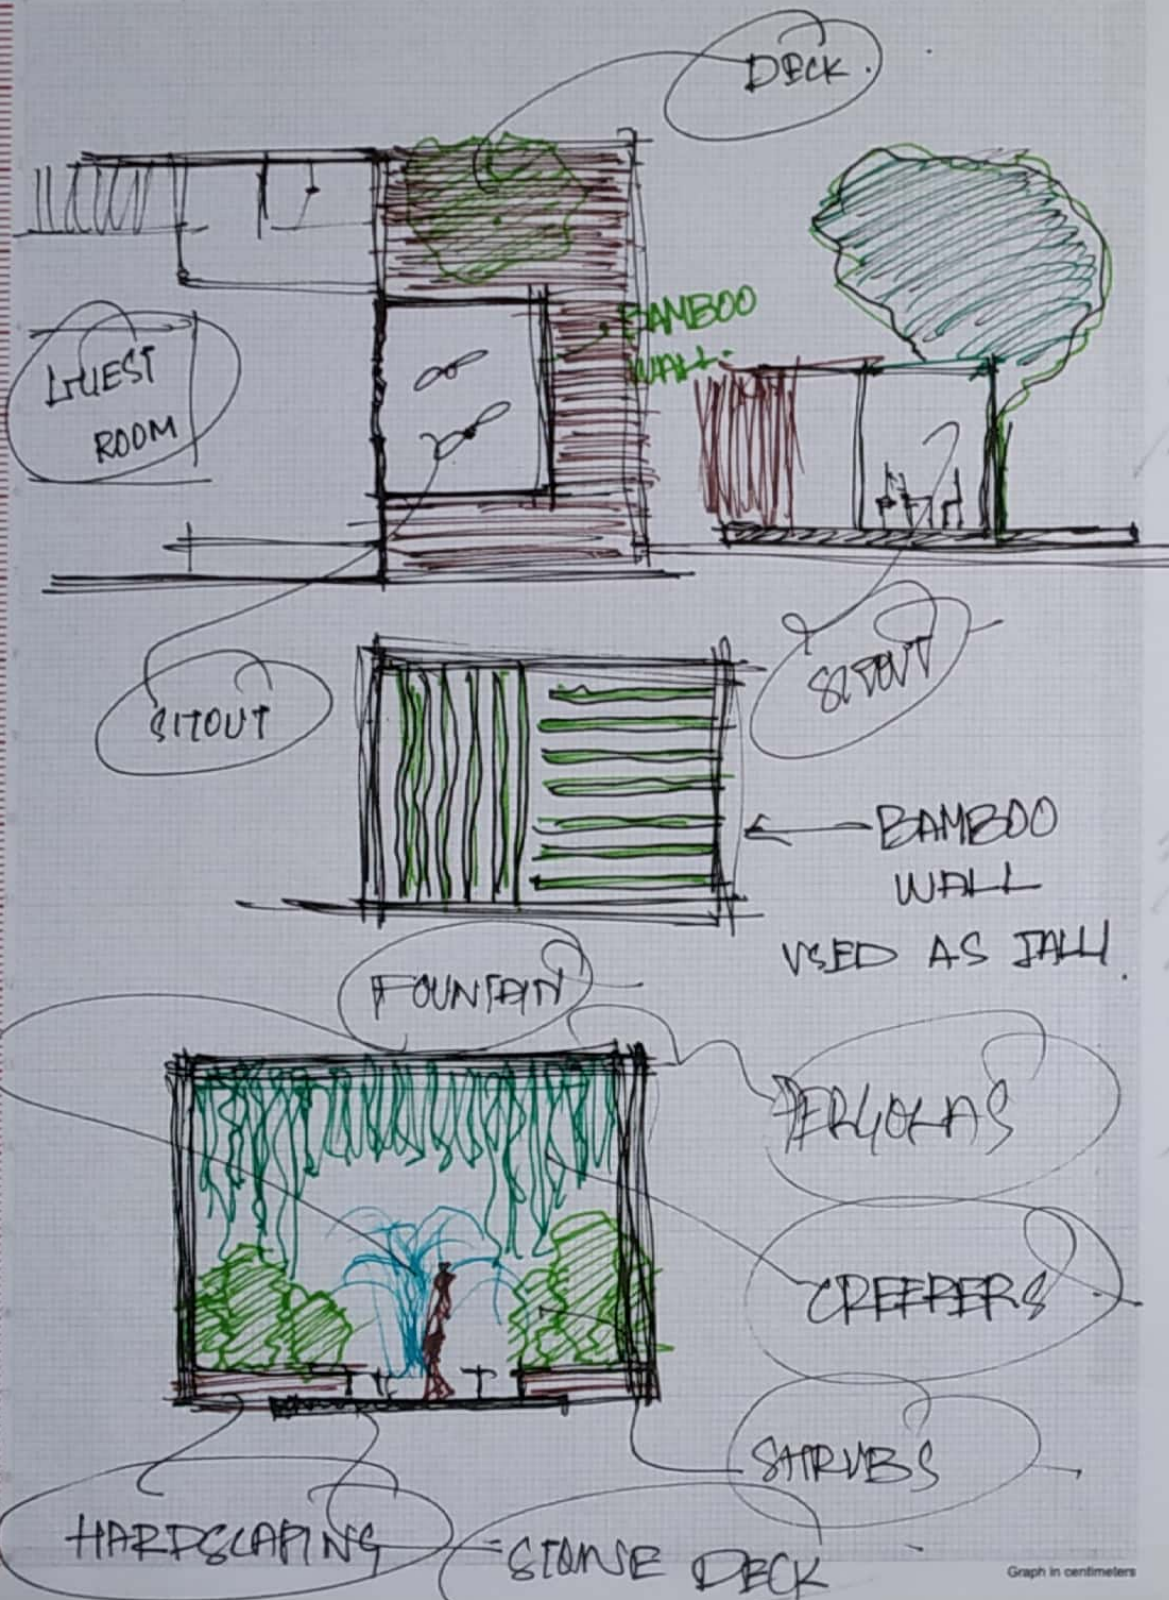 DECK.
BAMBOO
WALL.
GUEST
ROOM
SITOUT
SITOUT
BAMBOO
WALL
USED AS JALLI.
FOUNTAIN
PERGOLAS
CREEPERS
SHRUBS
HARDSCAPING
STONE DECK
Graph in centimeters